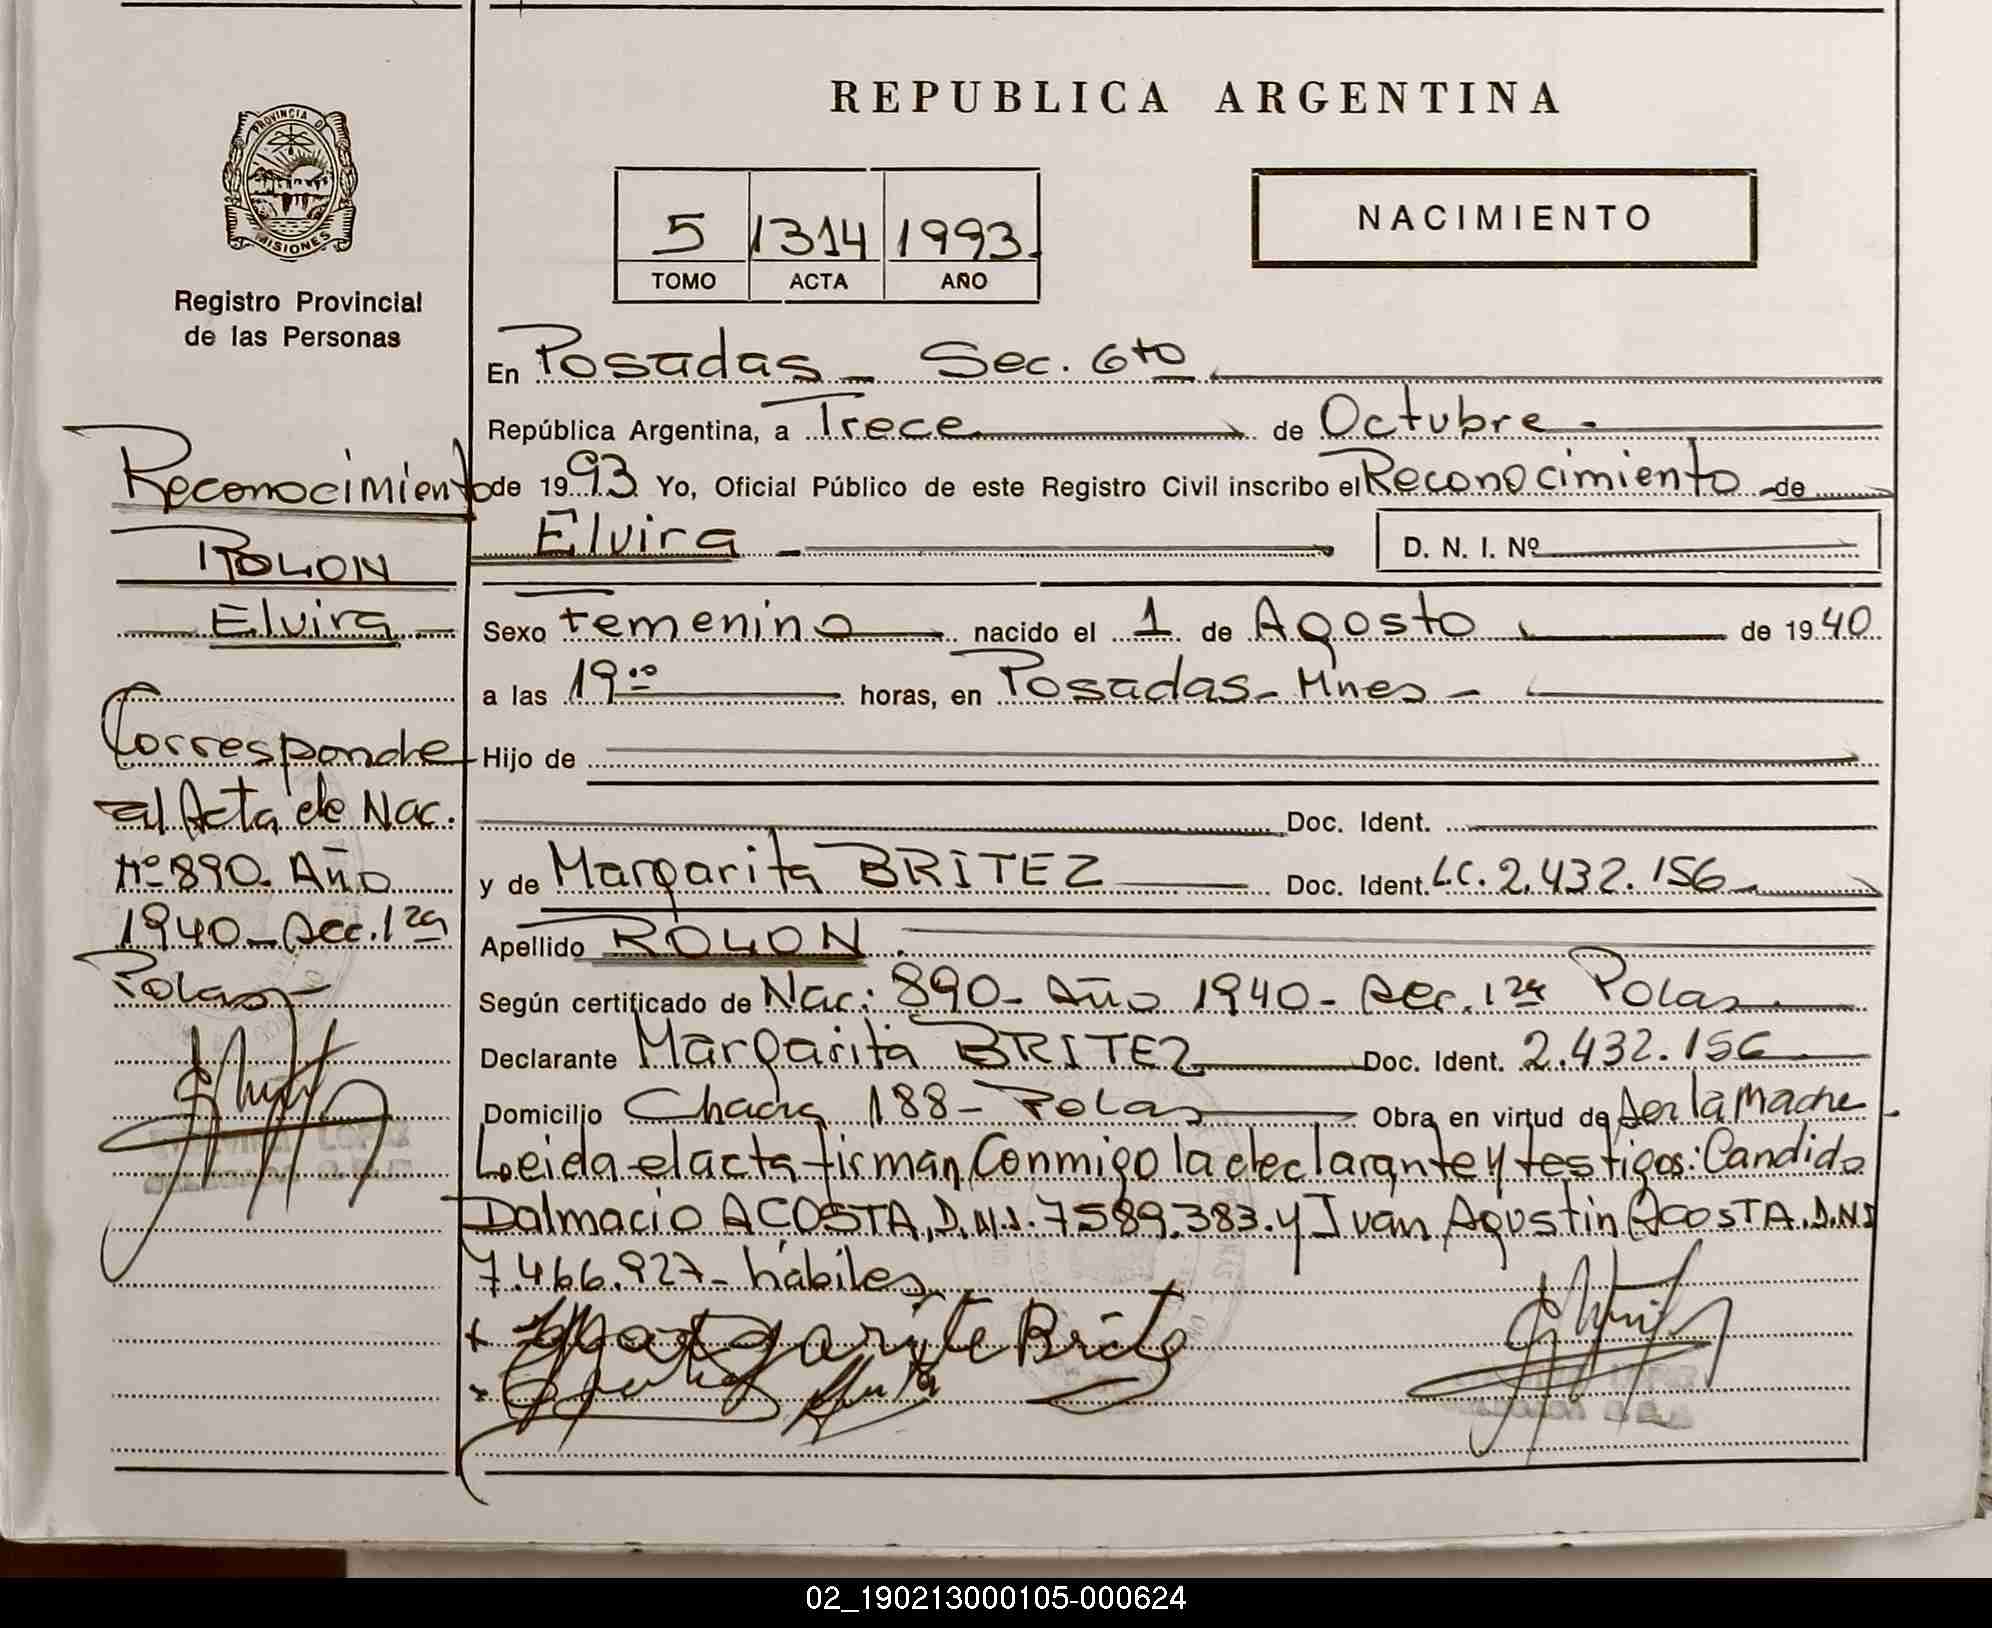 REPUBLICA ARGENTINA
PROVINCIA D
MISIONES
Registro Provincial
de las Personas
5 1314 1993.
TOMO ACTA AÑO
NACIMIENTO
Reconocimiento
ROLON
Elvira
Corresponde
al Acta de Nac.
Nº 890. Año
1940 - Sec. 1ra
Pdas -
En Posadas - Sec. 6to
República Argentina, a Trece de Octubre -
de 1993 Yo, Oficial Público de este Registro Civil inscribo el Reconocimiento de
Elvira - D. N. I. Nº
Sexo Femenino nacido el 1 de Agosto de 1940
a las 19:00 horas, en Posadas - Mnes -
Hijo de
Doc. Ident.
y de Margarita BRITEZ Doc. Ident. L.C. 2.432.156
Apellido ROLON.
Según certificado de Nac: 890 - Año 1940 - Sec. 1ra Pdas
Declarante Margarita BRITEZ Doc. Ident. 2.432.156
Domicilio Chacra 188 - Pdas Obra en virtud de Ser la Madre.
Leida el acta firman Conmigo la declarante y testigos: Candido
Dalmacio ACOSTA, D.N.I. 7589.383. y Juan Agustin ACOSTA, D.N.I
7.466.927 - hábiles
x Margarita Brite
x
02_190213000105-000624